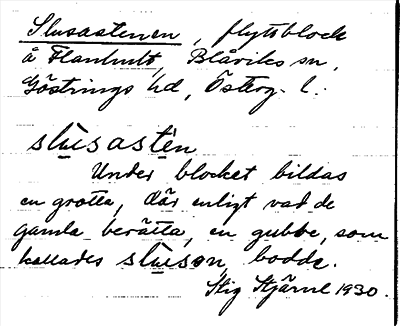 Slusastenen, flyttblock
å Flanhult, Blåviks sn,
Göstrings hd, Österg. l.
slu̲sastèn
Under blocket bildas
en grotta, där enligt vad de
gamla berätta, en gubbe, som
kallades slu̲sən, bodde.
Stig Stjärne 1930.